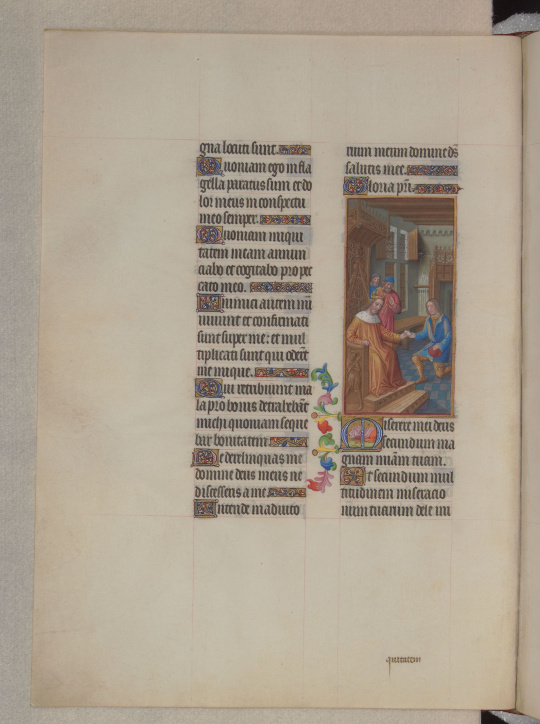 gna locuti sunt.
Quoniam ego in fla
gella paratus sum et do
lor meus in conspectu
meo semper.
Quoniam iniqui
tatem meam annun
ciabo et cogitabo pro pec
cato meo.
Inimici autem mei
vivunt et confirmati
sunt super me: et mul
tiplicati sunt qui oderūt
me inique.
Qui retribuunt ma
la pro bonis detrahebāt
michi quoniam seque
bar bonitatem
Ne derelinquas me
domine deus meus ne
discesseris a me
Intende in adiuto
rium meum domine ds
salutis mee.
Gloria pri.
Miserere mei deus
secundum ma
gnam miām tuam.
Et secundum mul
titudinem miseracio
num tuarum dele ini
quitatem